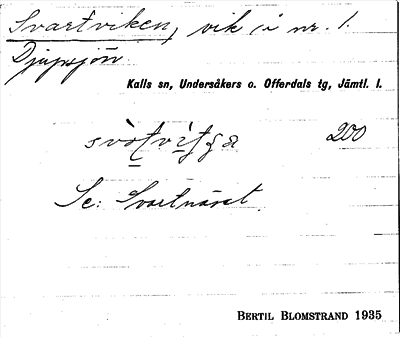 Svartviken, vik i nr. 1.
Djupsjön.
Kalls sn, Undersåkers o. Offerdals tg, Jämtl. l.
200
Se: Svartnäset.
BERTIL BLOMSTRAND 1935